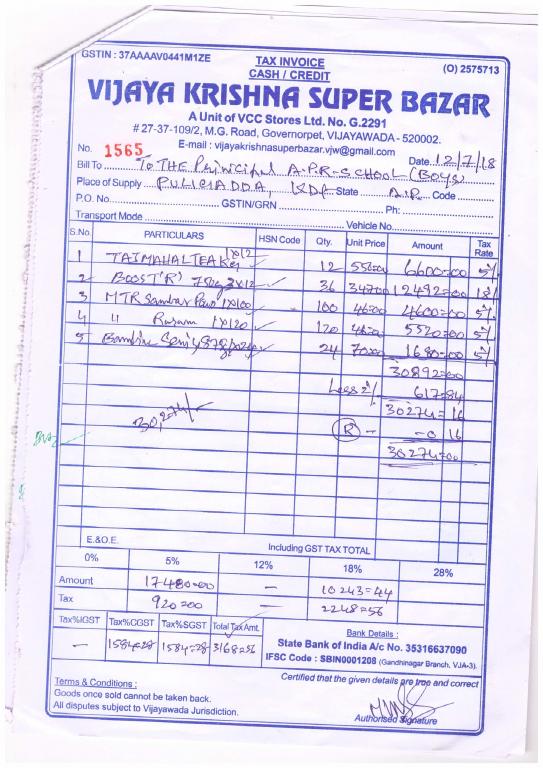 GSTIN : 37AAAAV0441M1ZE
TAX INVOICE
CASH / CREDIT
(O) 2575713
VIJAYA KRISHNA SUPER BAZAR
A Unit of VCC Stores Ltd. No. G.2291
# 27-37-109/2, M.G. Road, Governorpet, VIJAYAWADA - 520002.
E-mail : vijayakrishnasuperbazar.vjw@gmail.com
No. 1565 Date 12/7/18
Bill To To THE Principal A.P.R-SCHOOL (Boys)
Place of Supply PULIGADDA, State A.P. Code
P.O. No. GSTIN/GRN Ph:
Transport Mode Vehicle No.
S.No. PARTICULARS HSN Code Qty. Unit Price Amount Tax Rate
1 TAJMAHAL TEA 1X12 12 550=00 6600=00 5%
2 BOOST 'R' 36 347=00 12492=00 18%
3 MTR Sambar 1X100 100 46=00 4600=00 5%
4 " Rasam 1X120 120 46=00 5520=00 5%
5 24 70=00 1680=00 5%
30892=00
Less 2% 617=84
30274=16
30,274/- R - -0 16
30274=00
E.&O.E. Including GST TAX TOTAL
0% 5% 12% 18% 28%
Amount 17480=00 - 10243=44
Tax 920=00 - 2248=56
Tax%IGST Tax%CGST Tax%SGST Total Tax Amt.
- 1584=28 1584=28 3168=56
Bank Details :
State Bank of India A/c No. 35316637090
IFSC Code : SBIN0001208 (Gandhinagar Branch, VJA-3).
Certified that the given details are true and correct
Terms & Conditions :
Goods once sold cannot be taken back.
All disputes subject to Vijayawada Jurisdiction.
Authorised Signature